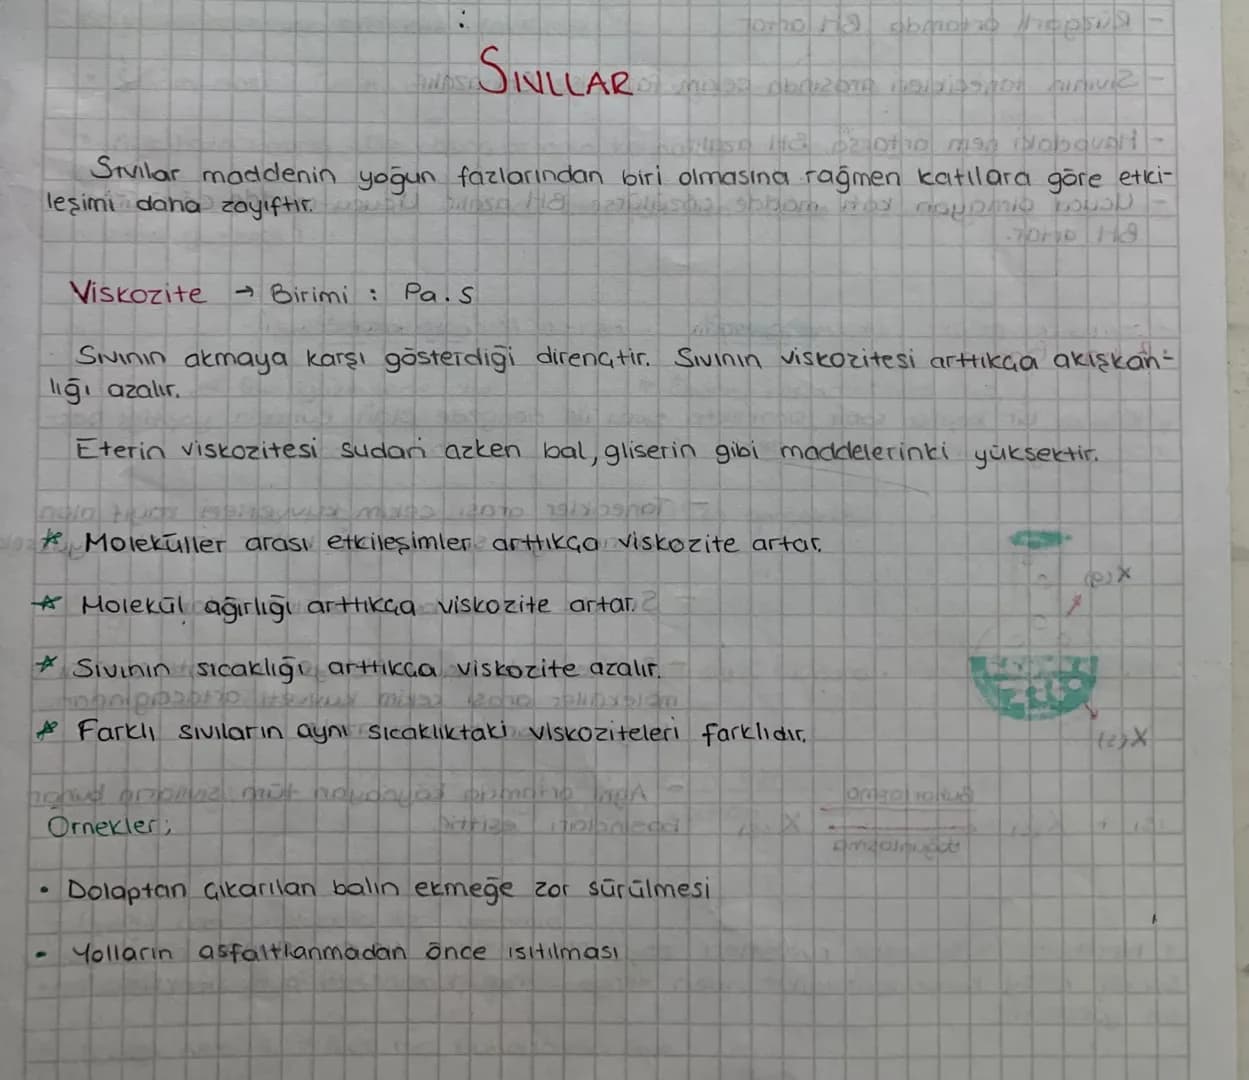 SIVILAR
Sıvılar maddenin yoğun fazlarından biri olmasına rağmen katılara göre etki-
leşimi daha zayıftır.
Viskozite → Birimi : Pa.s
Sıvının akmaya karşı gösterdiği dirençtir. Sıvının viskozitesi arttıkça akışkan-
lığı azalır.
Eterin viskozitesi sudan azken bal, gliserin gibi maddelerinki yüksektir.
* Moleküller arası etkileşimler arttıkça viskozite artar.
* Molekül ağırlığı arttıkça viskozite artar.
* Sıvının sıcaklığı arttıkça viskozite azalır.
* Farklı sıvıların aynı sıcaklıktaki viskoziteleri farklıdır.
Örnekler;
• Dolaptan çıkarılan balın ekmeğe zor sürülmesi
• Yolların asfaltlanmadan önce ısıtılması